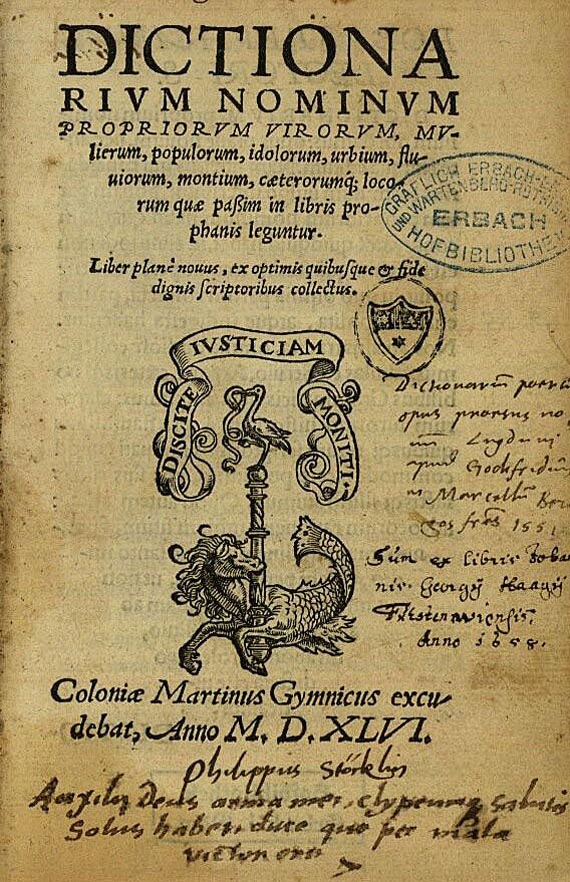 DICTIONA
RIVM NOMINVM
PROPRIORVM VIRORVM, MV-
lierum, populorum, idolorum, urbium, flu-
uiorum, montium, cæterorumq́; loco-
rum quæ paßim in libris pro-
phanis leguntur.
Liber planè nouus, ex optimis quibuſque & fide
dignis ſcriptoribus collectus.
GRÄFLICH ERBACH-
UND WARTENBERG-ROTH
ERBACH
HOFBIBLIOTHEK
DISCITE
IVSTICIAM
MONITI.
Dictionariū
opus no
Lugduni
apud Godfridū
Marcellū
1551
Sum ex libris Joha
nis Georgij Haagij
Anno 1658.
Coloniæ Martinus Gymnicus excu-
debat, Anno M. D. XLVI.
Philippus
Auxiliū Deus arma mei, clypeumq salutis
Solus habet duce quo per mala
victor ero